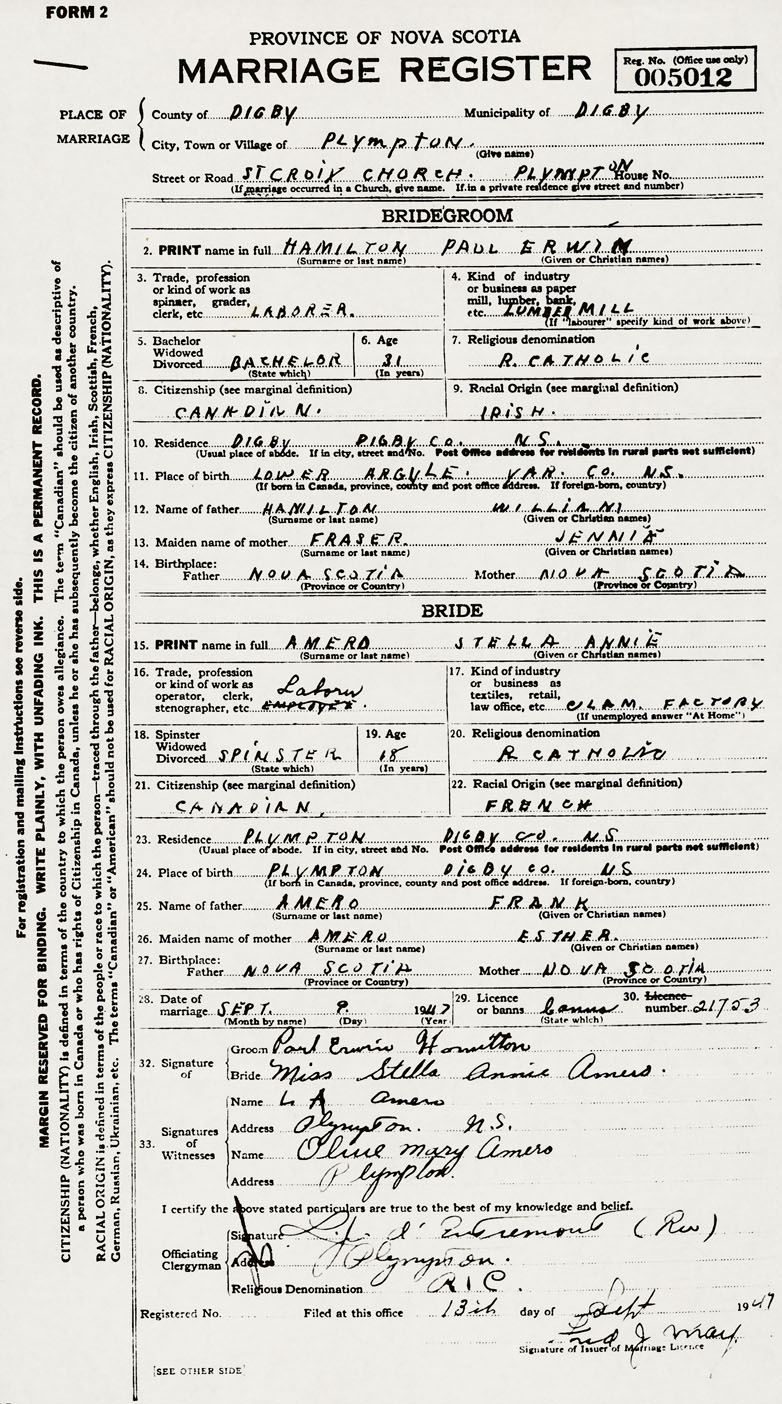 FORM 2
PROVINCE OF NOVA SCOTIA
MARRIAGE REGISTER
Reg. No. (Office use only)
005012
PLACE OF MARRIAGE
County of DIGBY Municipality of DIGBY
City, Town or Village of PLYMPTON.
(Give name)
Street or Road ST CROIX CHORCH. PLYMPTON House No.
(If marriage occurred in a Church, give name. If in a private residence give street and number)
BRIDEGROOM
2. PRINT name in full HAMILTON PAUL ERWIN
(Surname or last name) (Given or Christian names)
3. Trade, profession
or kind of work as
spinner, grader,
clerk, etc LABORER.
4. Kind of industry
or business as paper
mill, lumber, bank,
etc. LUMBER MILL
(If "labourer" specify kind of work above)
5. Bachelor
Widowed
Divorced BACHELOR
(State which)
6. Age
31
(In years)
7. Religious denomination
R. CATHOLIC
8. Citizenship (see marginal definition)
CANADIAN.
9. Racial Origin (see marginal definition)
IRISH.
10. Residence DIGBY DIGBY CO. N.S.
(Usual place of abode. If in city, street and No. Post Office address for residents in rural parts not sufficient)
11. Place of birth LOWER ARGYLE. YAR. CO. N.S.
(If born in Canada, province, county and post office address. If foreign-born, country)
12. Name of father HAMILTON WILLIAM
(Surname or last name) (Given or Christian names)
13. Maiden name of mother FRASER. JENNIE
(Surname or last name) (Given or Christian names)
14. Birthplace:
Father NOVA SCOTIA Mother NOVA SCOTIA
(Province or Country) (Province or Country)
BRIDE
15. PRINT name in full AMERO STELLA ANNIE
(Surname or last name) (Given or Christian names)
16. Trade, profession
or kind of work as
operator, clerk,
stenographer, etc Laborer EMPLOYEE.
17. Kind of industry
or business as
textiles, retail,
law office, etc CLAM. FACTORY
(If unemployed answer "At Home")
18. Spinster
Widowed
Divorced SPINSTER
(State which)
19. Age
18
(In years)
20. Religious denomination
R CATHOLIC
21. Citizenship (see marginal definition)
CANADIAN,
22. Racial Origin (see marginal definition)
FRENCH
23. Residence PLYMPTON DIGBY CO. N.S
(Usual place of abode. If in city, street and No. Post Office address for residents in rural parts not sufficient)
24. Place of birth PLYMPTON DIGBY CO. NS
(If born in Canada, province, county and post office address. If foreign-born, country)
25. Name of father AMERO FRANK
(Surname or last name) (Given or Christian names)
26. Maiden name of mother AMERO ESTHER.
(Surname or last name) (Given or Christian names)
27. Birthplace:
Father NOVA SCOTIA Mother NOVA SCOTIA
(Province or Country) (Province or Country)
28. Date of
marriage SEPT. 8. 1947
(Month by name) (Day) (Year)
29. Licence
or banns banns
(State which)
30. Licence
number 21753
32. Signature of
Groom Paul Erwin Hamilton
Bride Miss Stella Annie Amero.
33. Signatures of Witnesses
Name L A Amero
Address Plympton. N.S.
Name Olive Mary Amero
Address Plympton.
I certify the above stated particulars are true to the best of my knowledge and belief.
Officiating Clergyman
Signature d'Entremont (Rev)
Address Plympton.
Religious Denomination R.C.
Registered No. Filed at this office 13th day of Sept 1947
Fred J May
Signature of Issuer of Marriage Licence
[SEE OTHER SIDE]
For registration and mailing instructions see reverse side.
MARGIN RESERVED FOR BINDING. WRITE PLAINLY, WITH UNFADING INK. THIS IS A PERMANENT RECORD.
CITIZENSHIP (NATIONALITY) is defined in terms of the country to which the person owes allegiance. The term "Canadian" should be used as descriptive of
a person who was born in Canada or who has rights of Citizenship in Canada, unless he or she has subsequently become the citizen of another country.
RACIAL ORIGIN is defined in terms of the people or race to which the person—traced through the father—belongs, whether English, Irish, Scottish, French,
German, Russian, Ukrainian, etc. The terms "Canadian" or "American" should not be used for RACIAL ORIGIN, as they express CITIZENSHIP (NATIONALITY).